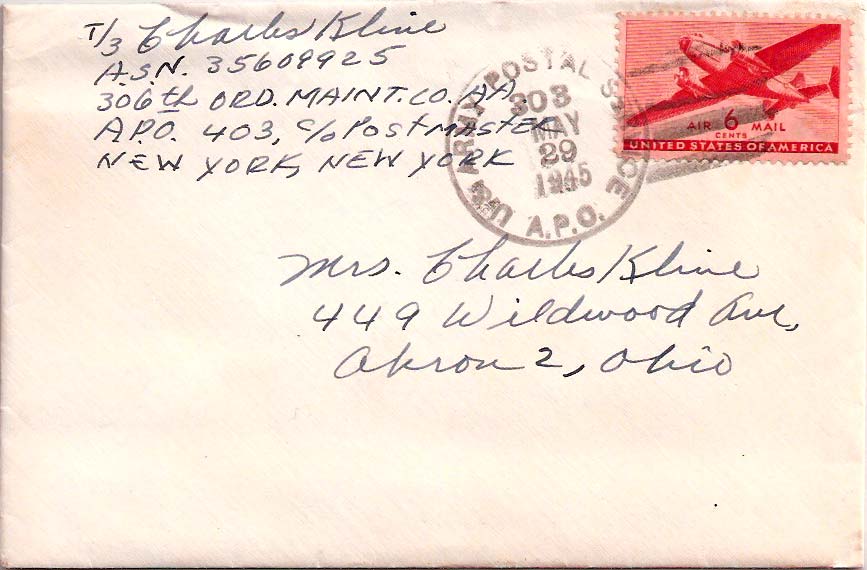 T/3 Charles Kline
A.S.N. 35609925
306th ORD. MAINT. CO. AA
A.P.O. 403, c/o POSTMASTER
NEW YORK, NEW YORK
U.S. ARMY POSTAL SERVICE
MAY
29
1945
A.P.O.
AIR 6 MAIL
CENTS
UNITED STATES OF AMERICA
Mrs. Charles Kline
449 Wildwood Ave,
Akron 2, Ohio